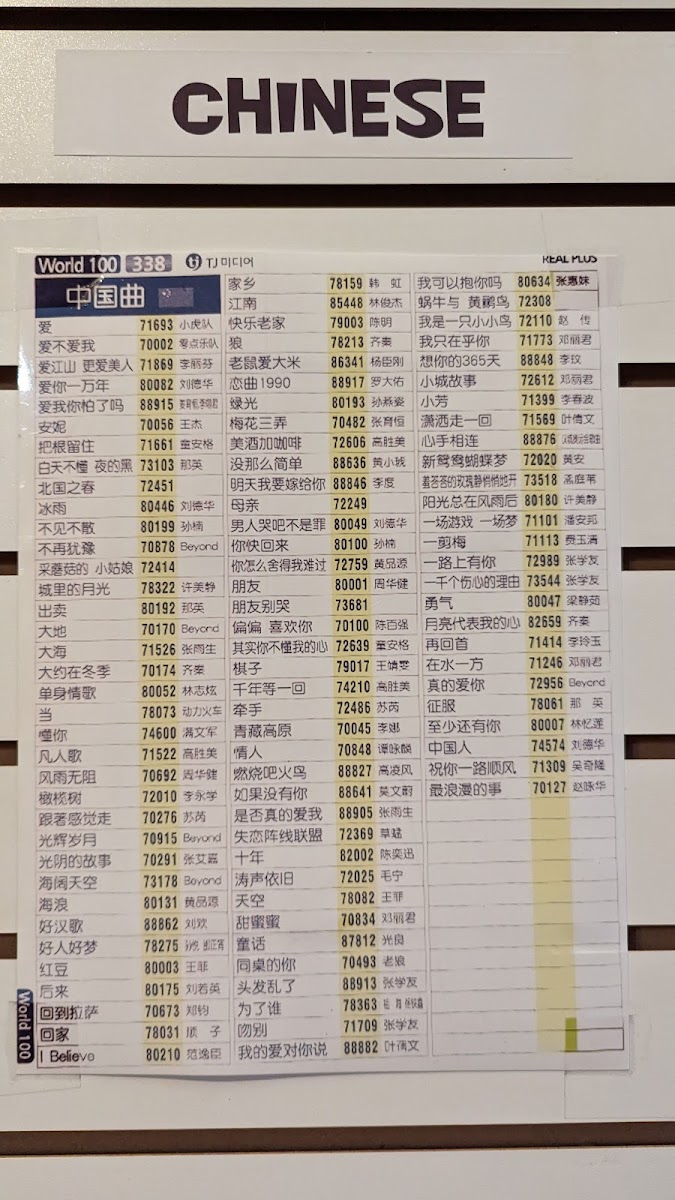 CHINESE
World 100 338 TJ 미디어 REAL PLUS
中国曲
爱 71693 小虎队
爱不爱我 70002 零点乐队
爱江山 更爱美人 71869 李丽芬
爱你一万年 80082 刘德华
爱我你怕了吗 88915
安妮 70056 王杰
把根留住 71661 童安格
白天不懂 夜的黑 73103 那英
北国之春 72451
冰雨 80446 刘德华
不见不散 80199 孙楠
不再犹豫 70878 Beyond
采蘑菇的 小姑娘 72414
城里的月光 78322 许美静
出卖 80192 那英
大地 70170 Beyond
大海 71526 张雨生
大约在冬季 70174 齐秦
单身情歌 80052 林志炫
当 78073 动力火车
懂你 74600 满文军
凡人歌 71522 高胜美
风雨无阻 70692 周华健
橄榄树 72010 李永学
跟著感觉走 70276 苏芮
光辉岁月 70915 Beyond
光阴的故事 70291 张艾嘉
海阔天空 73178 Beyond
海浪 80131 黄品源
好汉歌 88862 刘欢
好人好梦 78275
红豆 80003 王菲
后来 80175 刘若英
回到拉萨 70673 郑钧
回家 78031 顺 子
I Believe 80210 范逸臣
World 100
家乡 78159 韩 虹
江南 85448 林俊杰
快乐老家 79003 陈明
狼 78213 齐秦
老鼠爱大米 86341 杨臣刚
恋曲1990 88917 罗大佑
绿光 80193 孙燕姿
梅花三弄 70482 张育恒
美酒加咖啡 72606 高胜美
没那么简单 88636 黄小琥
明天我要嫁给你 88846 李度
母亲 72249
男人哭吧不是罪 80049 刘德华
你快回来 80100 孙楠
你怎么舍得我难过 72759 黄品源
朋友 80001 周华健
朋友别哭 73681
偏偏 喜欢你 70100 陈百强
其实你不懂我的心 72639 童安格
棋子 79017 王靖雯
千年等一回 74210 高胜美
牵手 72486 苏芮
青藏高原 70045 李娜
情人 70848 谭咏麟
燃烧吧火鸟 88827 高凌风
如果没有你 88641 莫文蔚
是否真的爱我 88905 张雨生
失恋阵线联盟 72369 草蜢
十年 82002 陈奕迅
涛声依旧 72025 毛宁
天空 78082 王菲
甜蜜蜜 70834 邓丽君
童话 87812 光良
同桌的你 70493 老狼
头发乱了 88913 张学友
为了谁 78363
吻别 71709 张学友
我的爱对你说 88882 叶蒨文
我可以抱你吗 80634 张惠妹
蜗牛与 黄鹂鸟 72308
我是一只小小鸟 72110 赵 传
我只在乎你 71773 邓丽君
想你的365天 88848 李玟
小城故事 72612 邓丽君
小芳 71399 李春波
潇洒走一回 71569 叶倩文
心手相连 88876
新鸳鸯蝴蝶梦 72020 黄安
羞答答的玫瑰静悄悄地开 73518 孟庭苇
阳光总在风雨后 80180 许美静
一场游戏 一场梦 71101 潘安邦
一剪梅 71113 费玉清
一路上有你 72989 张学友
一千个伤心的理由 73544 张学友
勇气 80047 梁静茹
月亮代表我的心 82659 齐秦
再回首 71414 李玲玉
在水一方 71246 邓丽君
真的爱你 72956 Beyond
征服 78061 那 英
至少还有你 80007 林忆莲
中国人 74574 刘德华
祝你一路顺风 71309 吴奇隆
最浪漫的事 70127 赵咏华